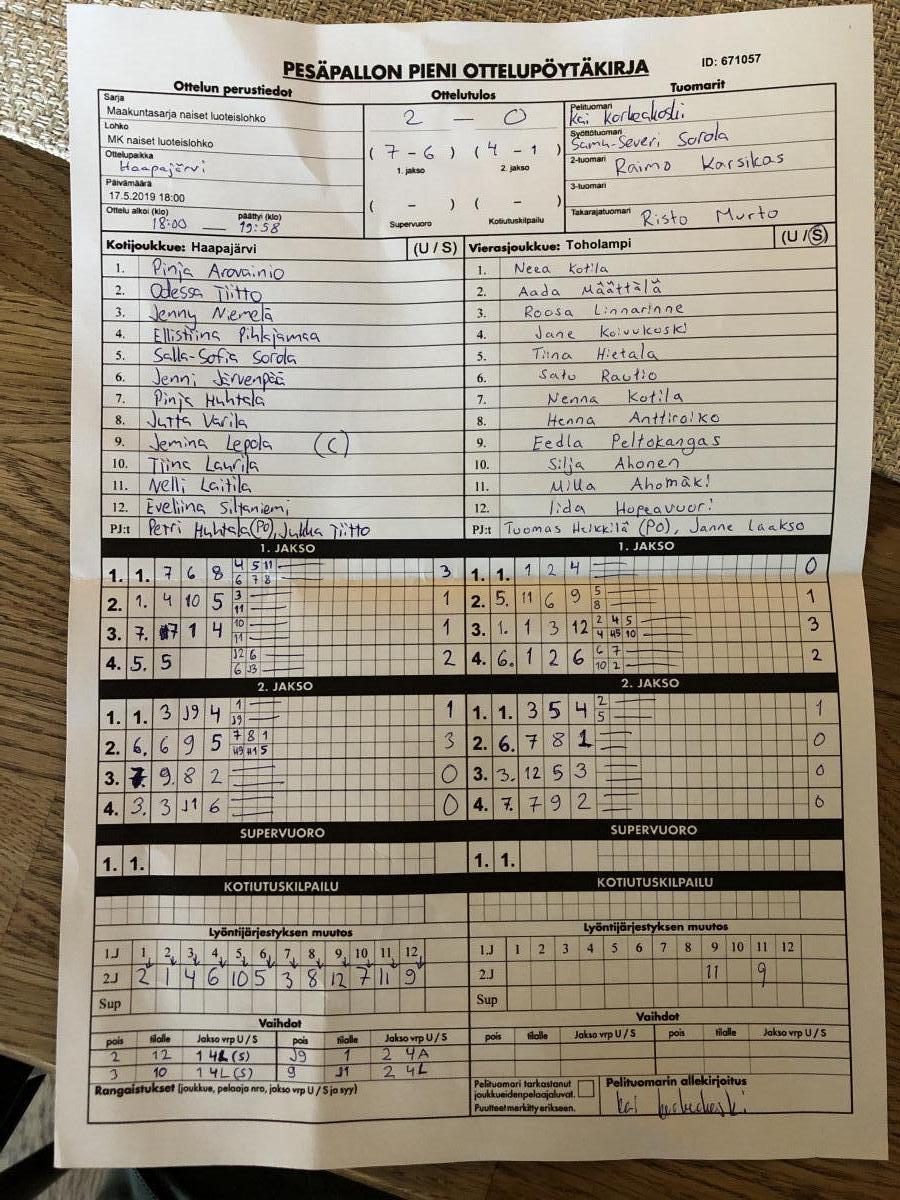 PESÄPALLON PIENI OTTELUPÖYTÄKIRJA
ID: 671057
Ottelun perustiedot
Sarja
Maakuntasarja naiset luoteislohko
Lohko
MK naiset luoteislohko
Ottelupaikka
Haapajärvi
Päivämäärä
17.5.2019 18:00
Ottelu alkoi (klo) päättyi (klo)
18:00 — 19:58
Ottelutulos
2 — 0
( 7 - 6 ) ( 4 - 1 )
1. jakso 2. jakso
( - ) ( - )
Supervuoro Kotiutuskilpailu
Tuomarit
Pelituomari
Kai Korkeakoski
Syöttötuomari
Samu-Severi Sorola
2-tuomari
Raimo Karsikas
3-tuomari
Takarajatuomari
Risto Murto
Kotijoukkue: Haapajärvi (U / S)
1. Pinja Aravainio
2. Odessa Tiitto
3. Jenny Niemelä
4. Ellistiina Pihlajamaa
5. Salla-Sofia Sorola
6. Jenni Järvenpää
7. Pinja Huhtala
8. Jutta Varila
9. Jemina Lepola (C)
10. Tiina Laurila
11. Nelli Laitila
12. Eveliina Siltaniemi
PJ:t Petri Huhtala (PO), Jukka Tiitto
Vierasjoukkue: Toholampi (U / S)
1. Neea Kotila
2. Aada Määttälä
3. Roosa Linnarinne
4. Jane Koivukoski
5. Tiina Hietala
6. Satu Rautio
7. Nenna Kotila
8. Henna Anttiroiko
9. Eedla Peltokangas
10. Silja Ahonen
11. Milla Ahomäki
12. Iida Hopeavuori
PJ:t Tuomas Heikkilä (PO), Janne Laakso
1. JAKSO
1. 1. 7 6 8 4 5 11 3
6 7 8
2. 1. 4 10 5 3 1
11
3. 7. 7 1 4 10 1
11
4. 5. 5 J2 6 2
6 J3
1. JAKSO
1. 1. 1 2 4 0
2. 5. 11 6 9 5 1
8
3. 1. 1 3 12 2 4 5 3
4 45 10
4. 6. 1 2 6 6 7 2
10 2
2. JAKSO
1. 1. 3 J9 4 1 1
J9
2. 6. 6 9 5 7 8 1 3
3. 7. 9. 8 2 0
4. 3. 3 J1 6 0
2. JAKSO
1. 1. 3 5 4 2 1
5
2. 6. 7 8 1 0
3. 3. 12 5 3 0
4. 7. 7 9 2 0
SUPERVUORO
1. 1.
SUPERVUORO
1. 1.
KOTIUTUSKILPAILU
KOTIUTUSKILPAILU
Lyöntijärjestyksen muutos
1.J 1 2 3 4 5 6 7 8 9 10 11 12
2.J 2 1 4 6 10 5 3 8 12 7 11 9
Sup
Lyöntijärjestyksen muutos
1.J 1 2 3 4 5 6 7 8 9 10 11 12
2.J 11 9
Sup
Vaihdot
pois tilalle Jakso vrp U / S pois tilalle Jakso vrp U / S
2 12 1 4L (S) J9 1 2 4A
3 10 1 4L (S) 9 J1 2 4L
Vaihdot
pois tilalle Jakso vrp U / S pois tilalle Jakso vrp U / S
Rangaistukset (joukkue, pelaaja nro, jakso vrp U / S ja syy)
Pelituomari tarkastanut
joukkueidenpelaajaluvat.
Puutteet merkitty erikseen.
Pelituomarin allekirjoitus
Kai Korkeakoski